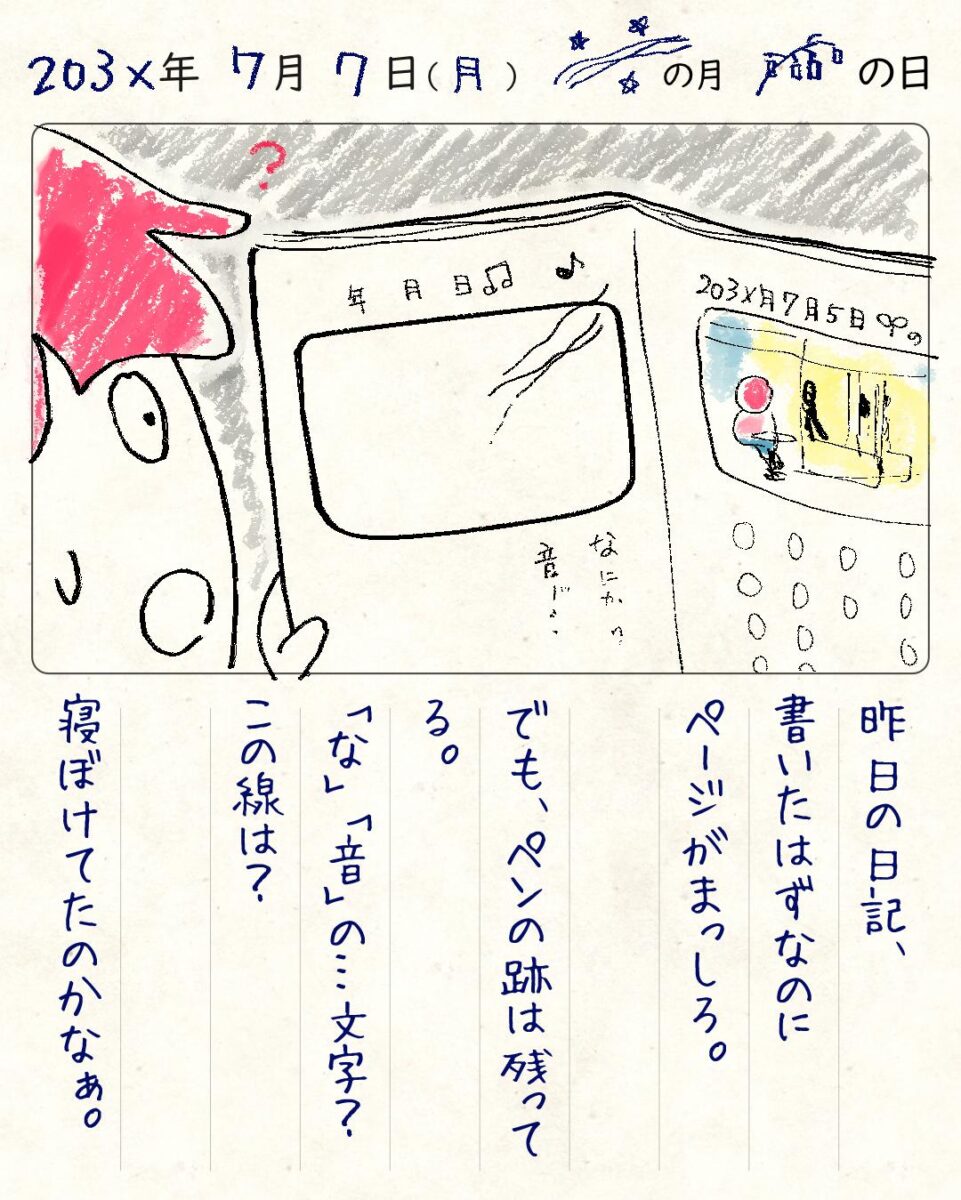 203x年 7月 7日(月) の月 の日
?
年 月 日
なにか
音
203x月7月5日 の
昨日の日記、
書いたはずなのに
ページがまっしろ。
でも、ペンの跡は残って
る。
「な」「音」の…文字?
この線は?
寝ぼけてたのかなぁ。